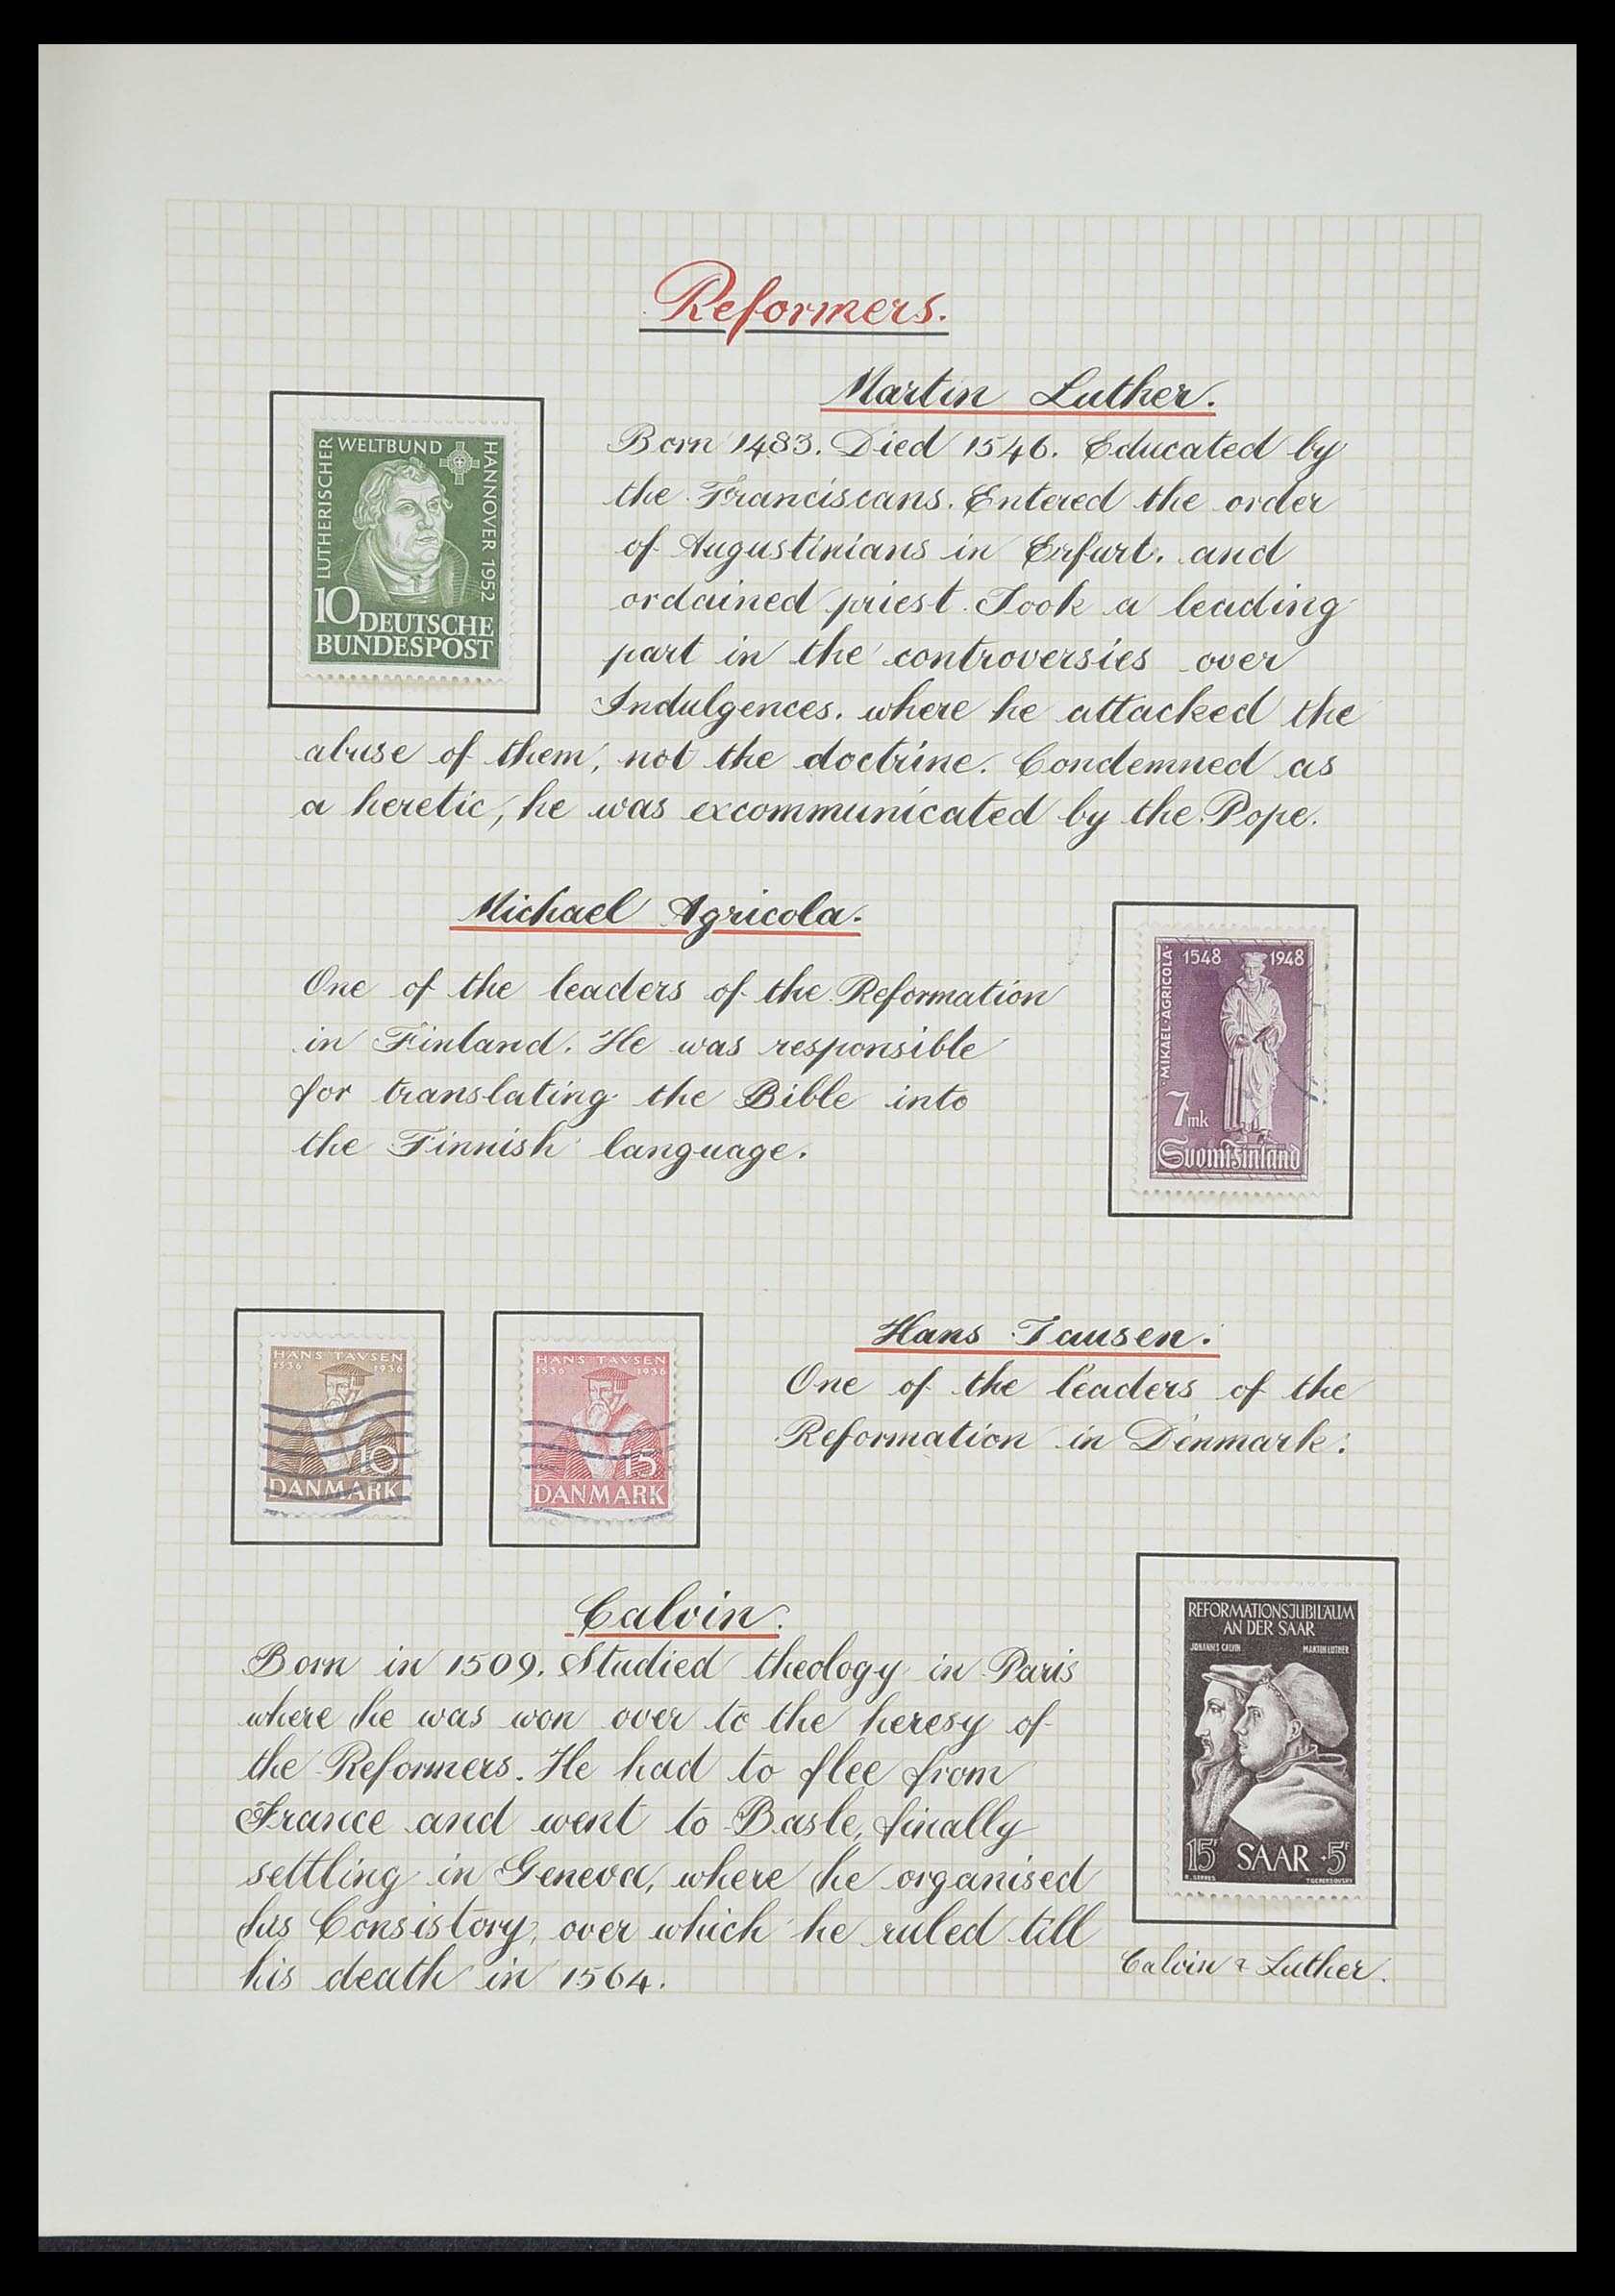 Reformers.
Martin Luther.
LUTHERISCHER WELTBUND HANNOVER 1952
10 DEUTSCHE
BUNDESPOST
Born 1483. Died 1546. Educated by
the Franciscans. Entered the order
of Augustinians in Erfurt. and
ordained priest. Took a leading
part in the controversies over
Indulgences. where he attacked the
abuse of them, not the doctrine. Condemned as
a heretic, he was excommunicated by the Pope.
Michael Agricola.
One of the leaders of the Reformation
in Finland. He was responsible
for translating the Bible into
the Finnish language.
1548 1948
·MIKAEL·AGRICOLA·
7 mk
Suomi Finland
HANS TAVSEN
1536 1936
10
DANMARK
HANS TAVSEN
1536 1936
15
DANMARK
Hans Tausen.
One of the leaders of the
Reformation in Denmark.
Calvin.
Born in 1509. Studied theology in Paris
where he was won over to the heresy of
the Reformers. He had to flee from
France and went to Basle, finally
settling in Geneva, where he organised
his Consistory, over which he ruled till
his death in 1564.
REFORMATIONSJUBILÄUM
AN DER SAAR
JOHANNES CALVIN MARTIN LUTHER
15F SAAR +5F
Calvin & Luther.